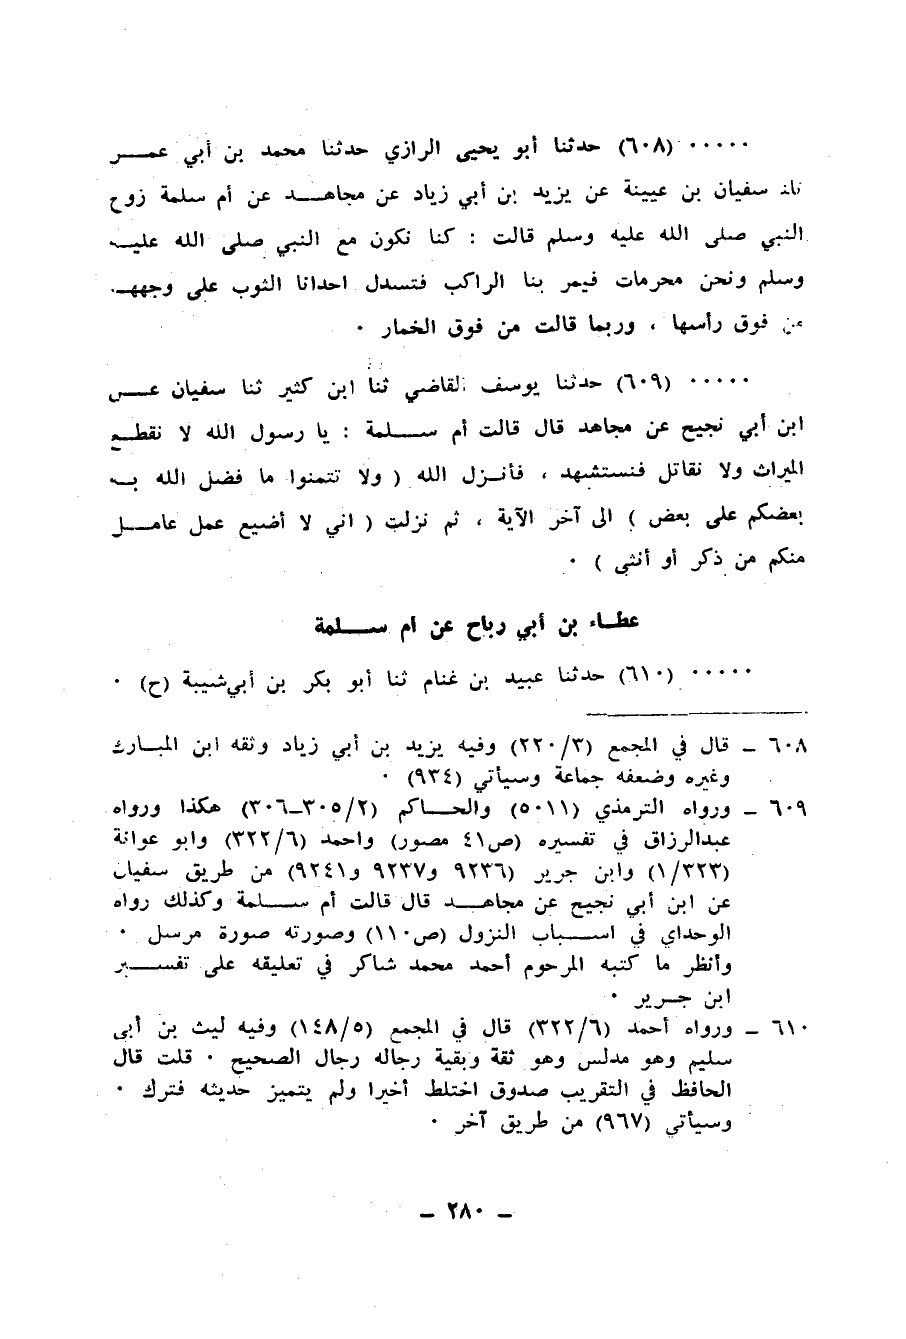 ..... (٦٠٨) حدثنا أبو يحيى الرازي حدثنا محمد بن أبي عمـــر
ثنا سفيان بن عيينة عن يزيد بن أبي زياد عن مجاهـــد عن أم سلمة زوج
النبي صلى الله عليه وسلم قالت : كنا نكون مع النبي صلى الله عليـه
وسلم ونحن محرمات فيمر بنا الراكب فتسدل احدانا الثوب على وجههـا
من فوق رأسها ، وربما قالت من فوق الخمار .
..... (٦٠٩) حدثنا يوسف القاضي ثنا ابن كثير ثنا سفيان عـــن
ابن أبي نجيح عن مجاهد قال قالت أم ســـلمة : يا رسول الله لا نقطـع
الميراث ولا نقاتل فنستشهد ، فأنـزل الله ( ولا تتمنوا ما فضل الله بـه
بعضكم على بعض ) الى آخر الآية ، ثم نزلت ( اني لا أضيع عمل عامـــل
منكم من ذكر أو أنثى ) .
عطـاء بن أبي رباح عن أم ســـلمة
..... (٦١٠) حدثنا عبيد بن غنام ثنا أبو بكر بن أبي شيبة (ح) .
٦٠٨ ـ قال في المجمع (٢٢٠/٣) وفيه يزيد بن أبي زياد وثقه ابن المبـارك
وغيره وضعفه جماعة وسيأتي (٩٣٤) .
٦٠٩ ـ ورواه الترمذي (٥٠١١) والحـــاكم (٣٠٥/٢ـ٣٠٦) هكذا ورواه
عبدالرزاق في تفسيره (ص٤١ مصور) واحمد (٣٢٢/٦) وابو عوانة
(١/٣٢٣) وابن جرير (٩٢٣٦ و٩٢٣٧ و٩٢٤١) من طريق سفيان
عن ابن أبي نجيح عن مجاهـــد قال قالت أم ســـلمة وكذلك رواه
الوحداي في اســـباب النزول (ص١١٠) وصورته صورة مرسل .
وأنظر ما كتبه المرحوم أحمد محمد شاكر في تعليقه على تفســـير
ابن جـرير .
٦١٠ ـ ورواه أحمد (٣٢٢/٦) قال في المجمع (١٤٨/٥) وفيه ليث بن أبى
سليم وهو مدلس وهو ثقة وبقية رجاله رجال الصحيح . قلت قال
الحافظ في التقريب صدوق اختلط أخيرا ولم يتميز حديثه فترك .
وسيأتي (٩٦٧) من طريق آخر .
ـ ٢٨٠ ـ